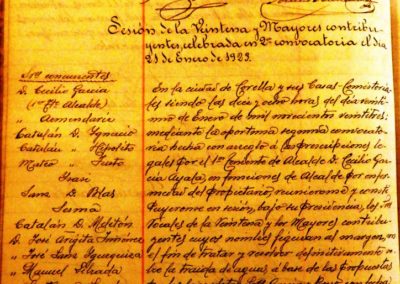 Sesión de la Veintena y Mayores contribu-
yentes, celebrada en 2ª convocatoria el dia
21 de Enero de 1923.
Sres concurrentes
D. Cecilio Garcia
(1er Tte Alcalde)
" Armendariz
Catalán D. Ygnacio
Catalán " Hipólito
Mateo " Justo
Sanz D. Blas
Catalán D. Melitón
D. José Argita Jiménez
" José Sanz
" Manuel
En la ciudad de Corella y sus Casas-Consistoria-
les siendo las diez y ocho horas del dia veinti-
uno de Enero de mil novecientos veintitres;
mediante la oportuna segunda convocato-
ria hecha con arreglo á las prescripciones le-
gales por el 1er Teniente de Alcalde D. Cecilio Gar-
cia Ayala, en funciones de Alcalde por enfer-
medad del propietario, reunieronse y consti-
tuyeronse en sesion, bajo su presidencia, los vo-
cales de la Veintena y los Mayores contribu-
yentes cuyos nombres figuran al margen, con
el fin de tratar y resolver definitivamente
la traida de aguas á base de las propuestas